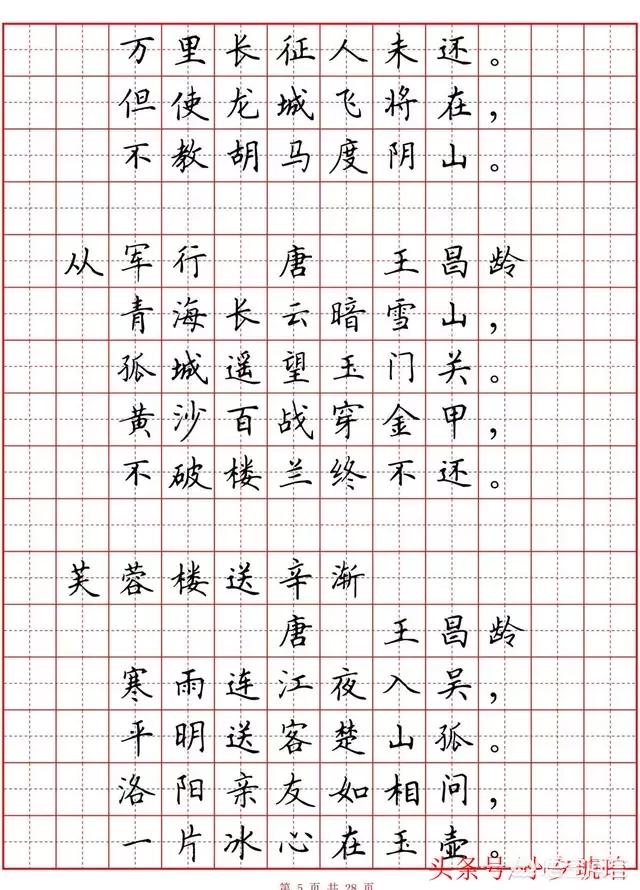 万里长征人未还。
但使龙城飞将在,
不教胡马度阴山。
从军行 唐 王昌龄
青海长云暗雪山,
孤城遥望玉门关。
黄沙百战穿金甲,
不破楼兰终不还。
芙蓉楼送辛渐
唐 王昌龄
寒雨连江夜入吴,
平明送客楚山孤。
洛阳亲友如相问,
一片冰心在玉壶。
头条号
第 5 页 共 28 页